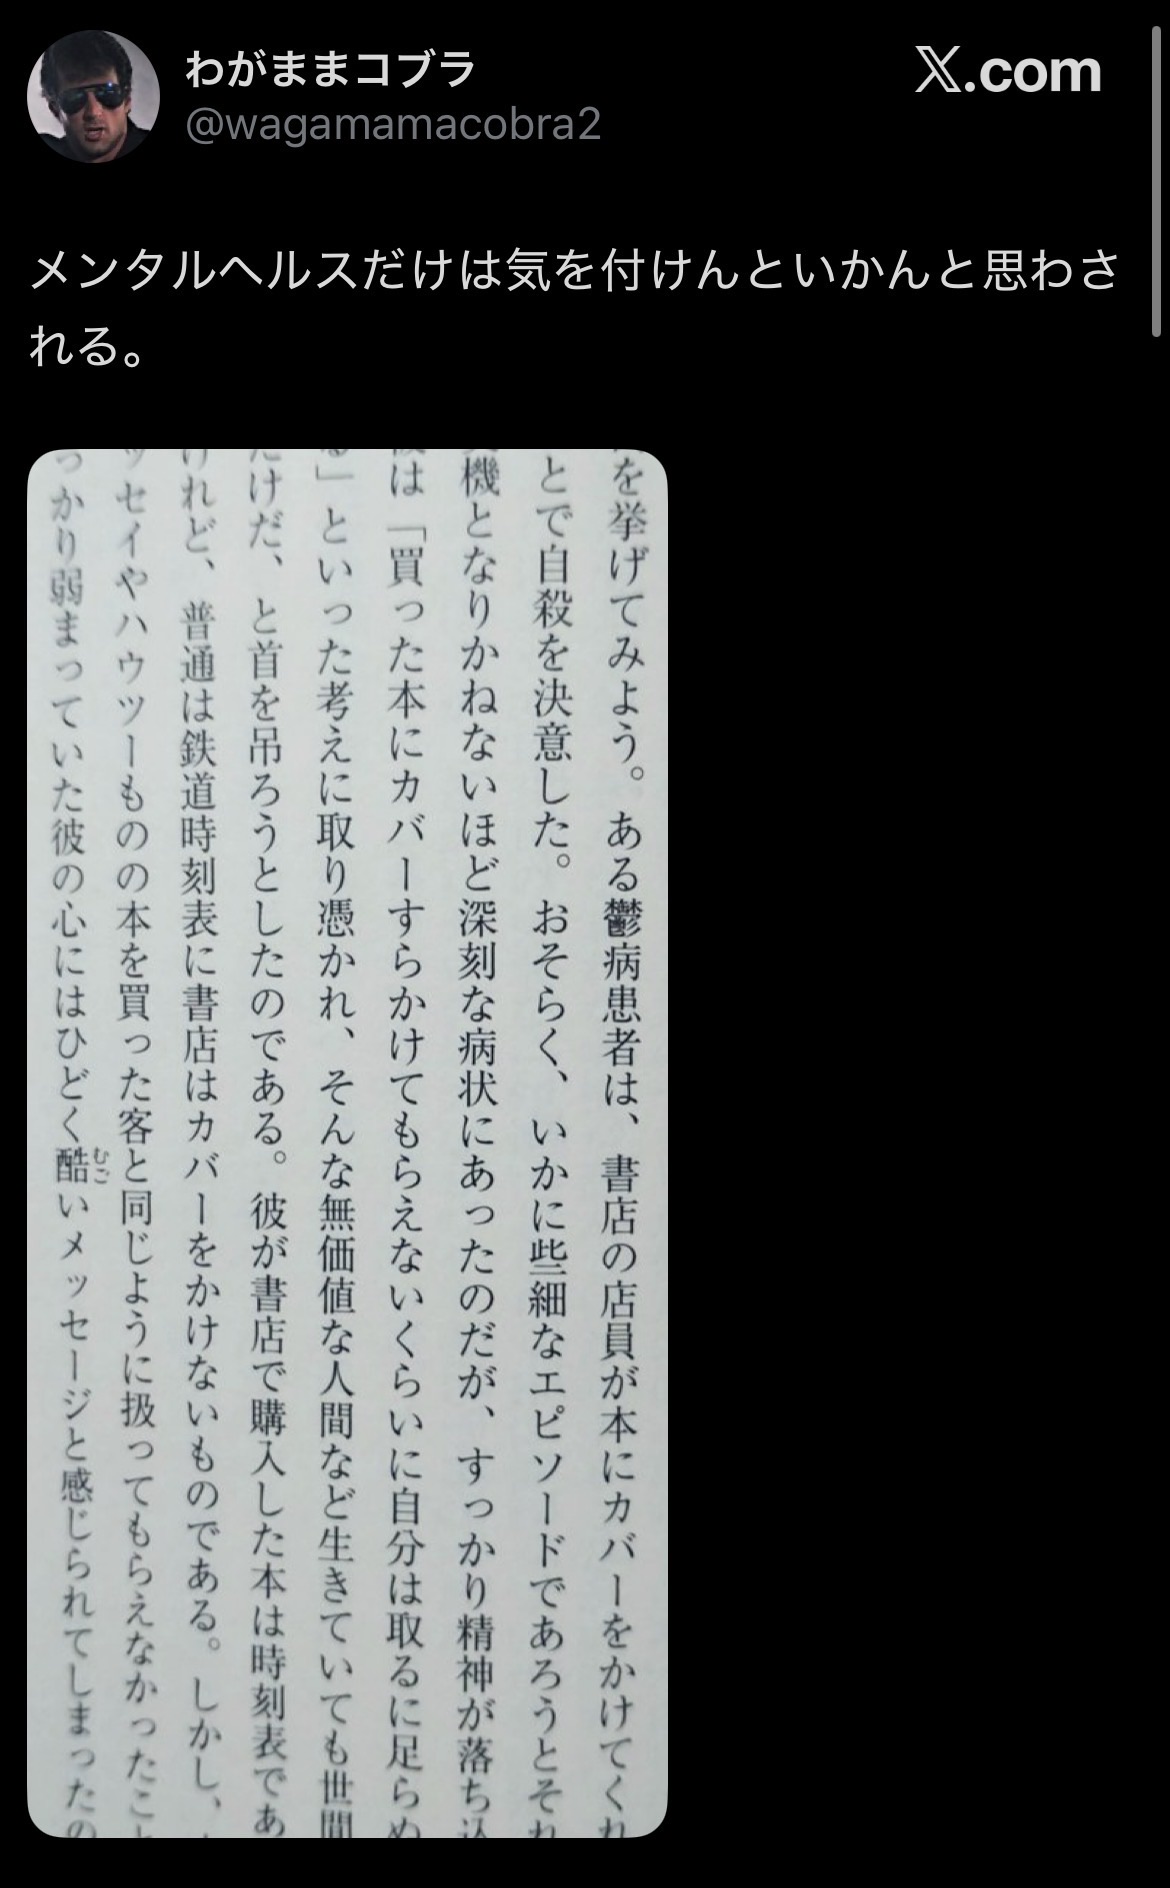 わがままコブラ
@wagamamacobra2
X.com
メンタルヘルスだけは気を付けんといかんと思わさ
れる。
を挙げてみよう。ある鬱病患者は、書店の店員が本にカバーをかけてくれ
とで自殺を決意した。おそらく、いかに些細なエピソードであろうとそれ
機となりかねないほど深刻な病状にあったのだが、すっかり精神が落ち込
彼は「買った本にカバーすらかけてもらえないくらいに自分は取るに足らぬ
る」といった考えに取り憑かれ、そんな無価値な人間など生きていても世間
だけだ、と首を吊ろうとしたのである。彼が書店で購入した本は時刻表であ
けれど、普通は鉄道時刻表に書店はカバーをかけないものである。しかし、
ッセイやハウツーものの本を買った客と同じように扱ってもらえなかったこと
っかり弱まっていた彼の心にはひどく酷いメッセージと感じられてしまったの
むご